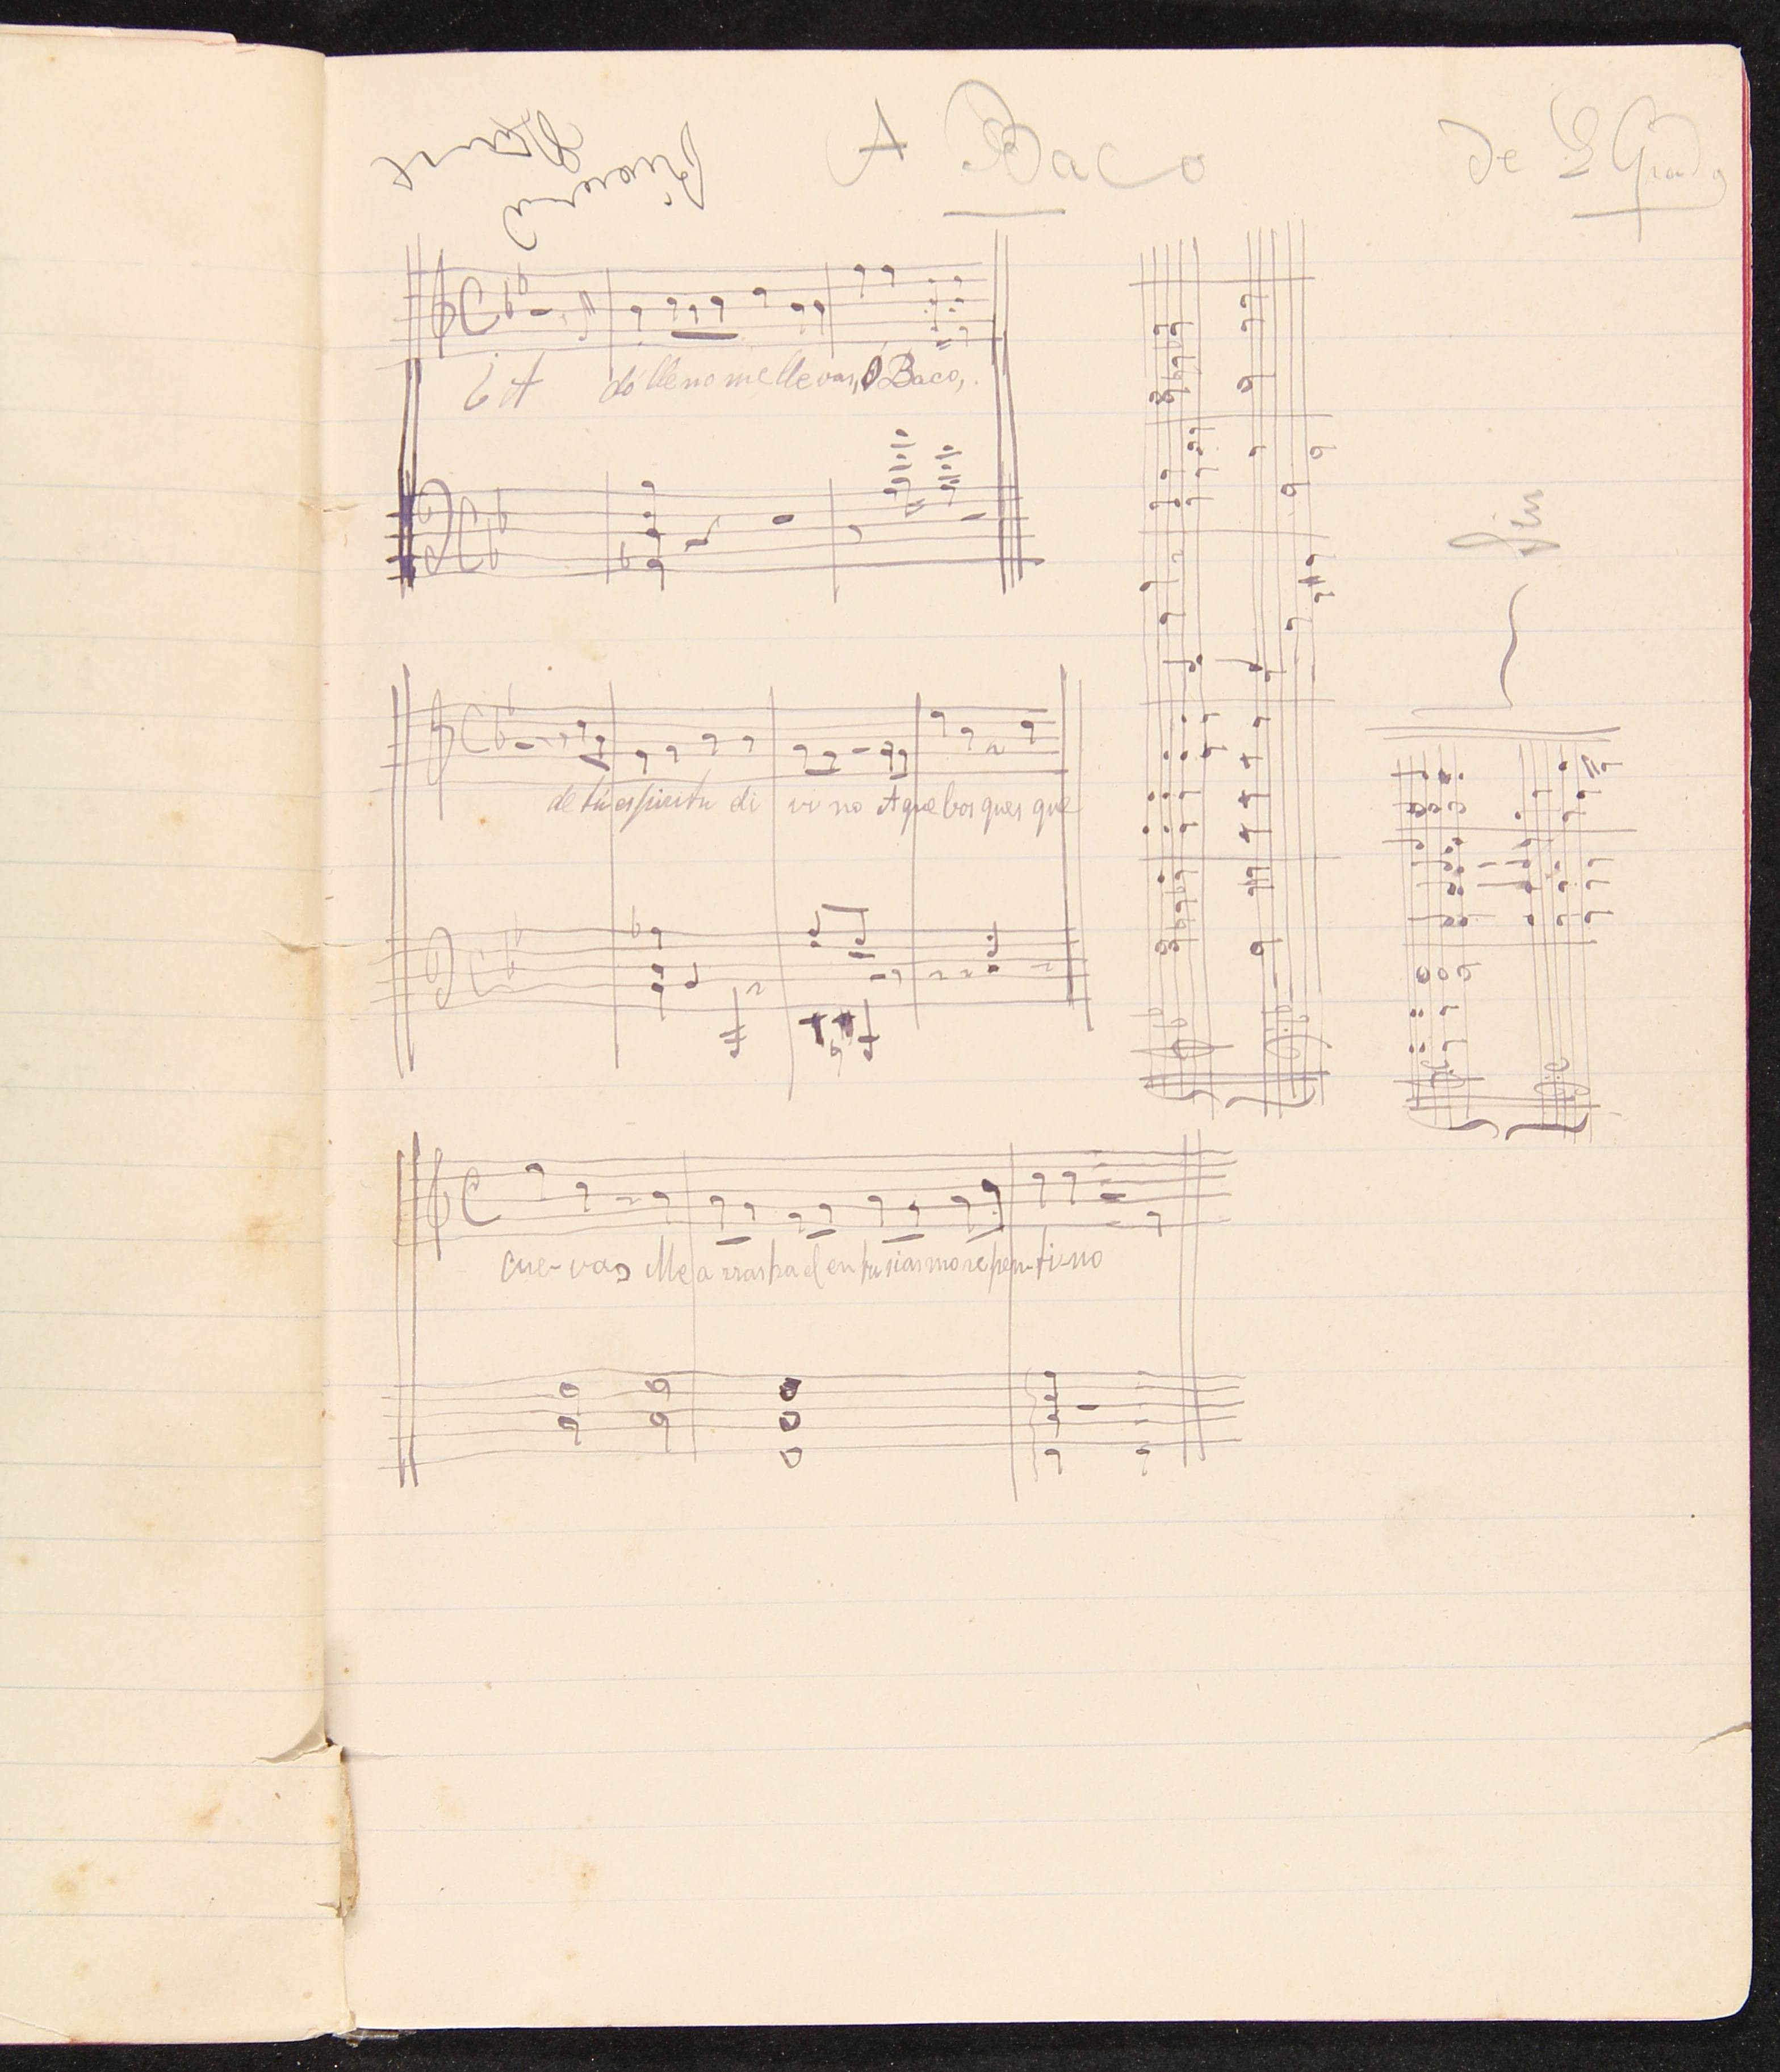 A Baco
¿A dó lleno me llevas, ó Baco,
de tú espiritu di vi no A que bosques que
cue-vas Me a rrastra el entusiasmo repen-ti-no
fin